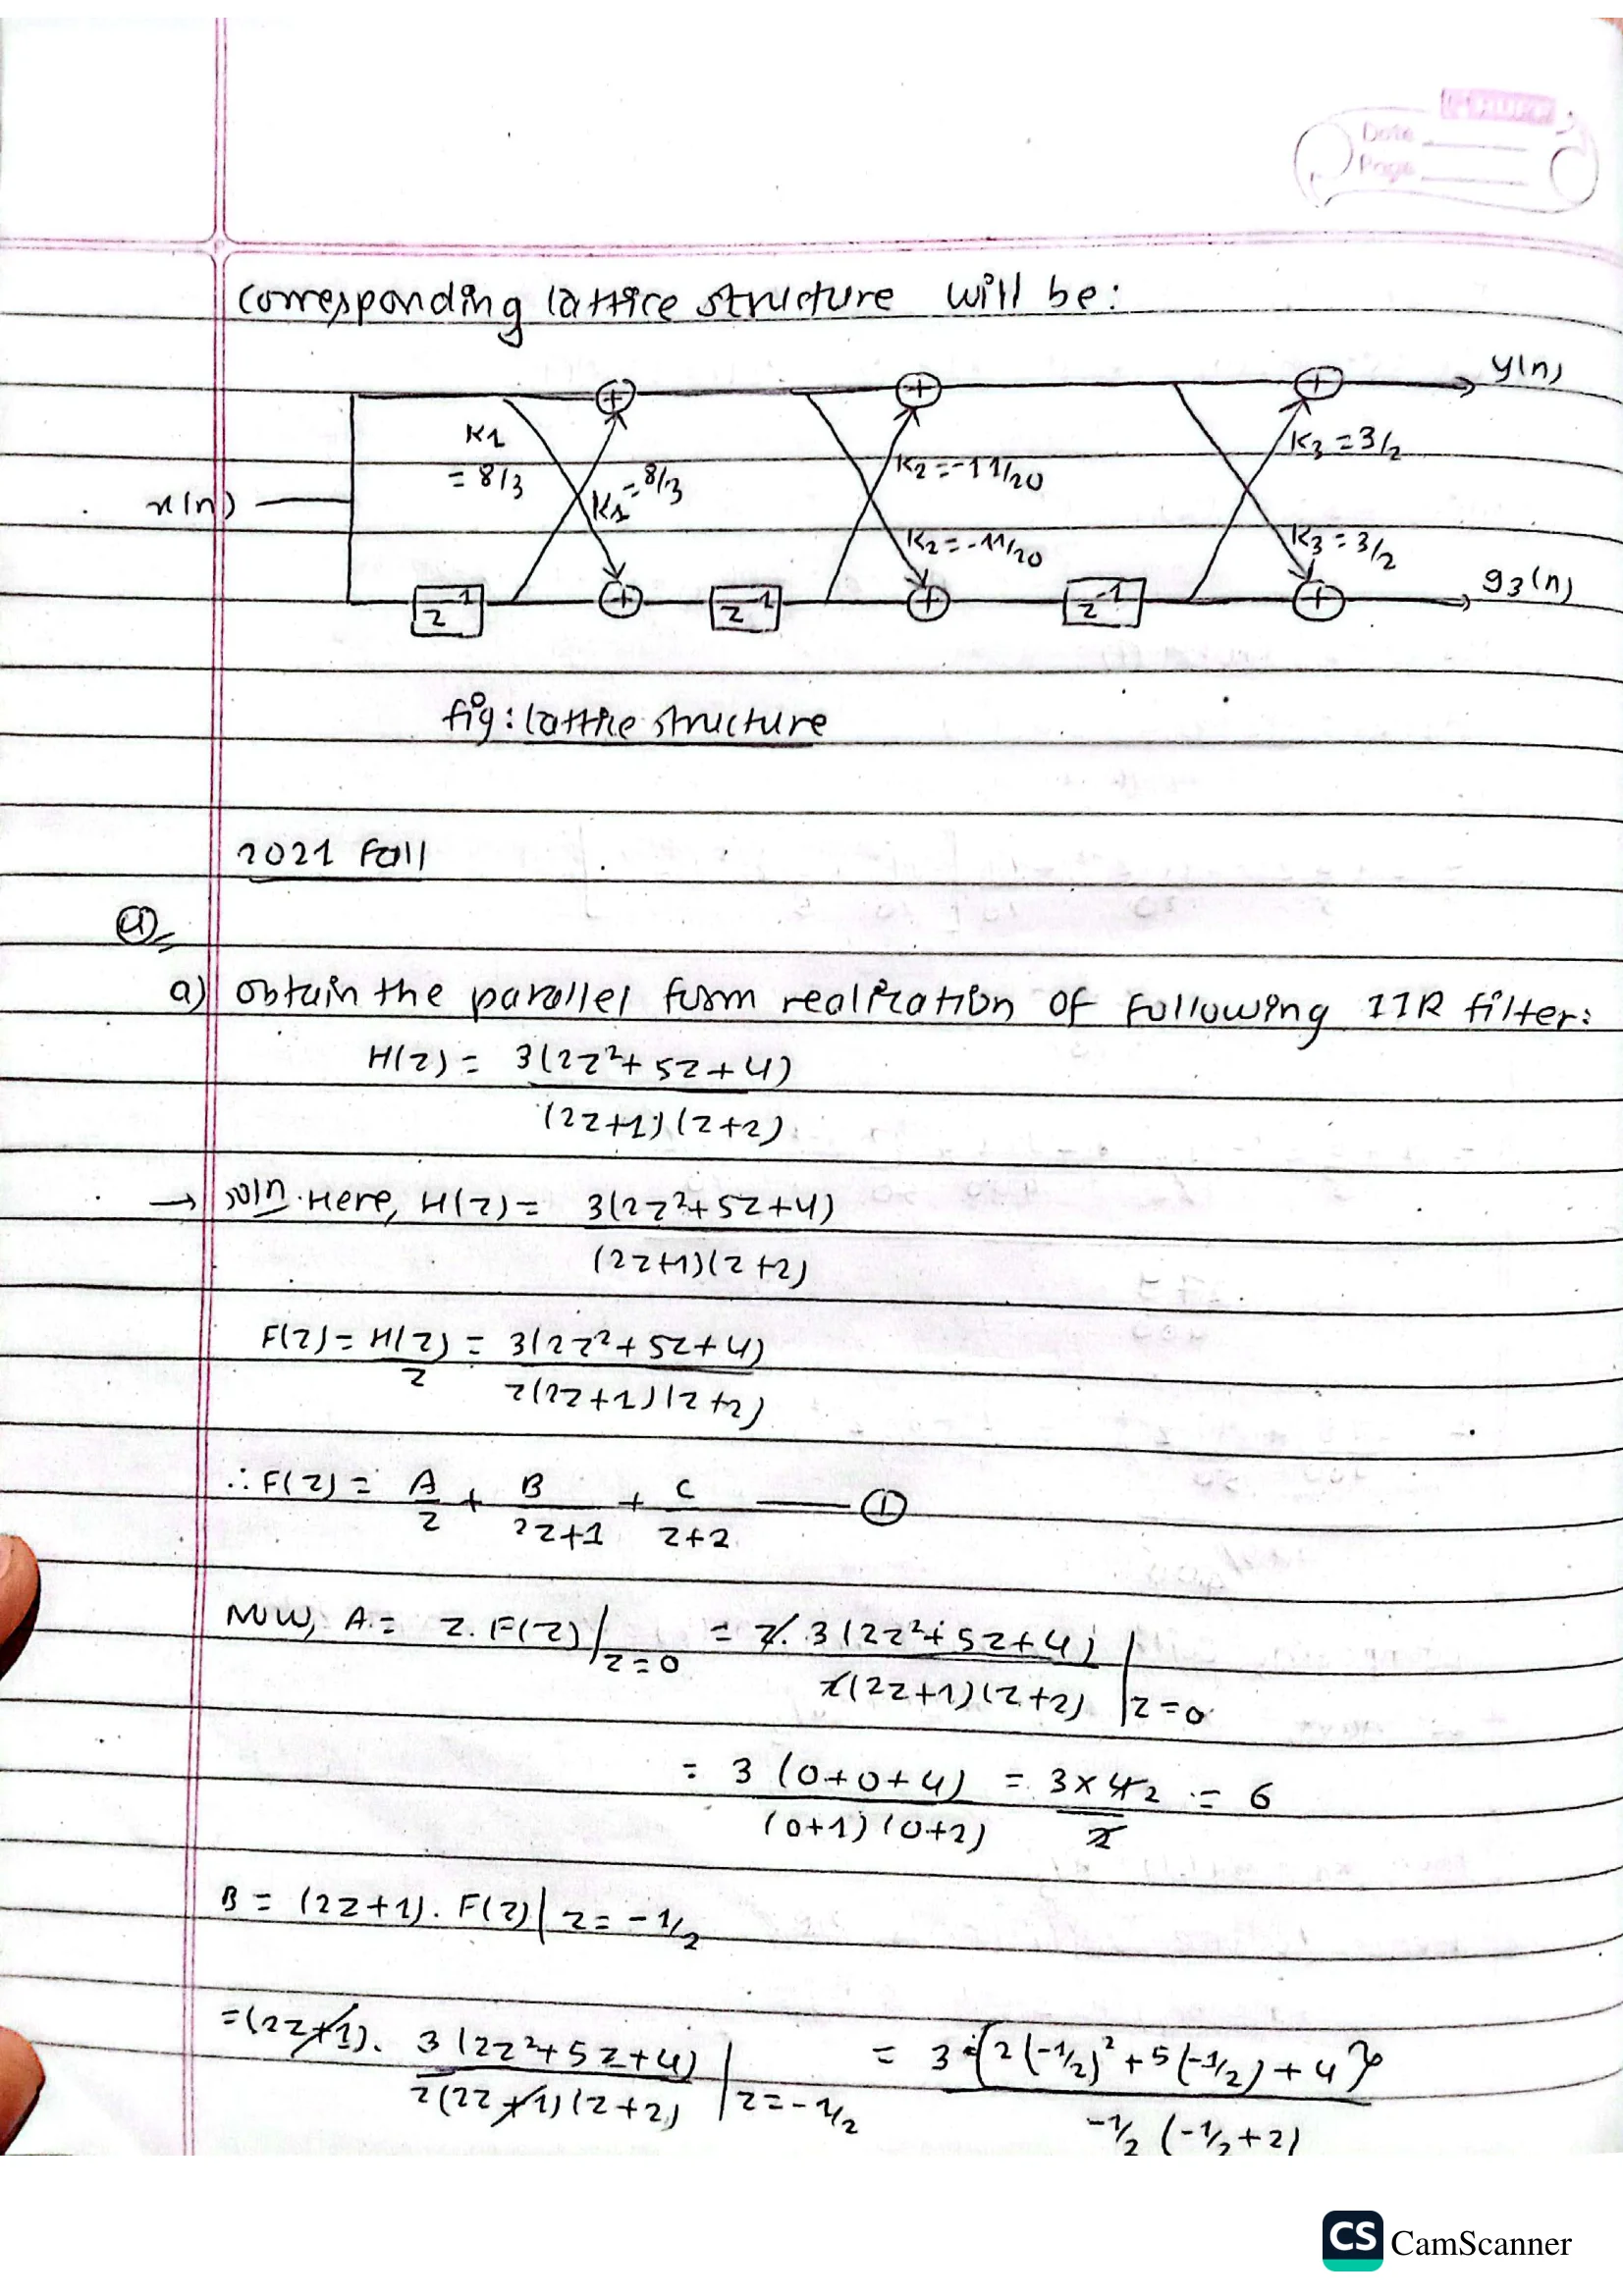 HURC
Date
Page
Corresponding lattice structure will be:
y(n)
K1 = 8/3
K1 = 8/3
K2 = -11/20
K3 = 3/2
x(n)
K2 = -11/20
K3 = 3/2
z^-1
z^-1
z^-1
g3(n)
fig: lattice structure
2021 Fall
4)
a) Obtain the parallel form realization of following IIR filter:
H(z) = 3(2z²+5z+4) / (2z+1)(z+2)
→ soln. Here, H(z) = 3(2z²+5z+4) / (2z+1)(z+2)
F(z) = H(z)/z = 3(2z²+5z+4) / z(2z+1)(z+2)
∴ F(z) = A/z + B/(2z+1) + C/(z+2) —— ①
Now, A = z. F(z)|z=0 = z. 3(2z²+5z+4) / z(2z+1)(z+2) |z=0
= 3(0+0+4) / (0+1)(0+2) = 3×4 2 / 2 = 6
B = (2z+1). F(z)| z = -1/2
= (2z+1). 3(2z²+5z+4) / z(2z+1)(z+2) | z = -1/2 = 3{2(-1/2)²+5(-1/2)+4} / -1/2 (-1/2+2)
CS CamScanner